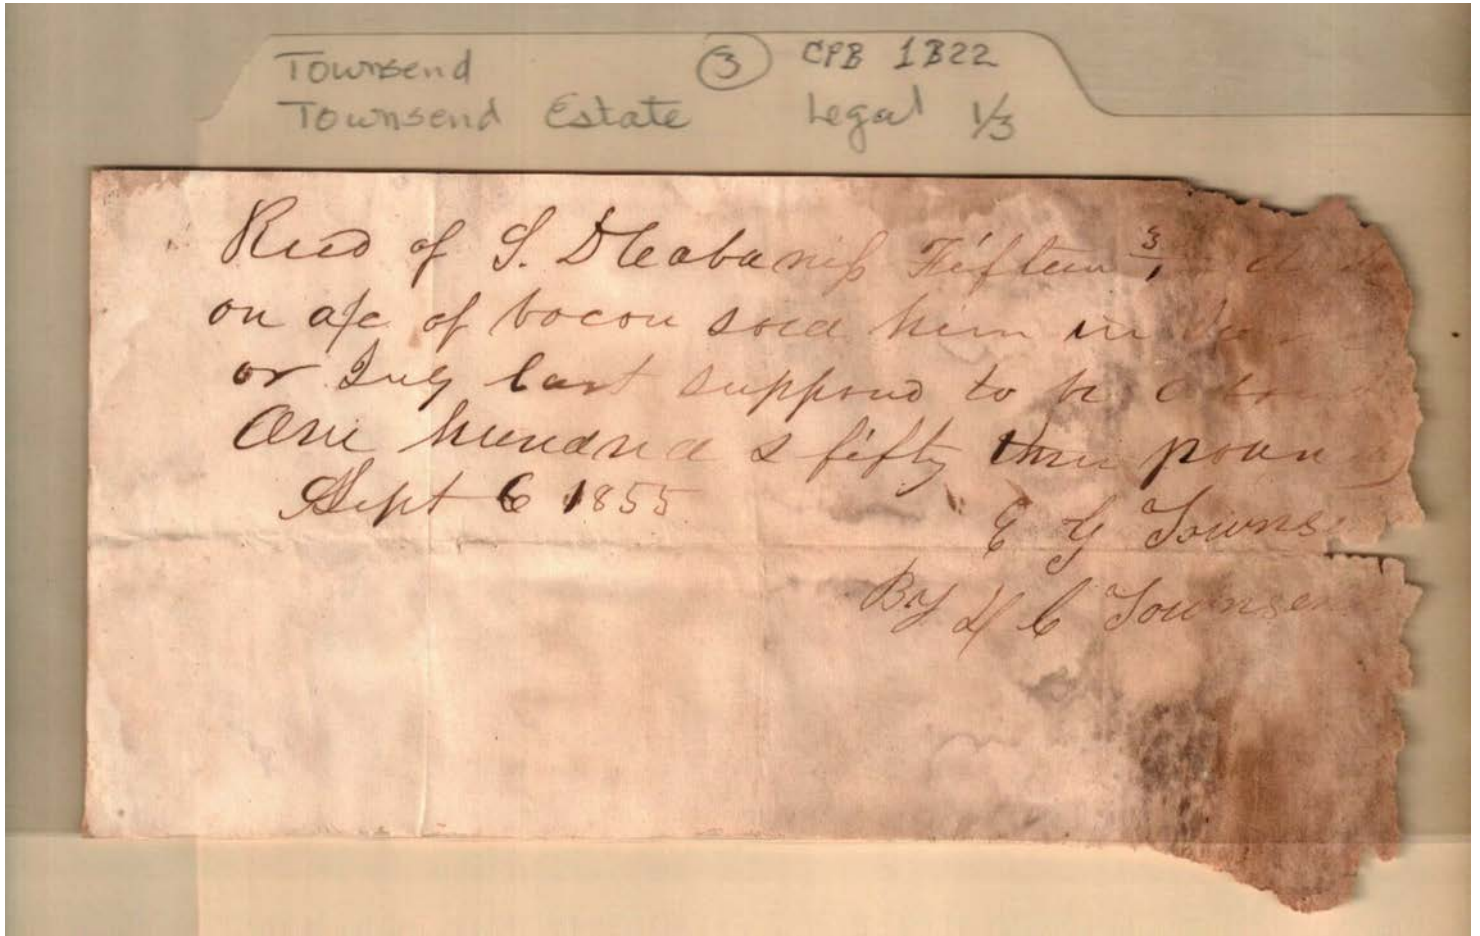 Townsend ③ CPB 1B22
Townsend Estate Legal 1/3
Recd of S. D Cabaniss Fifteen
on a/c of bacon sold him in
or July last supposd to be about
One hundred & fifty three poun
Sept 6 1855
E G Towns
By H C Townsen